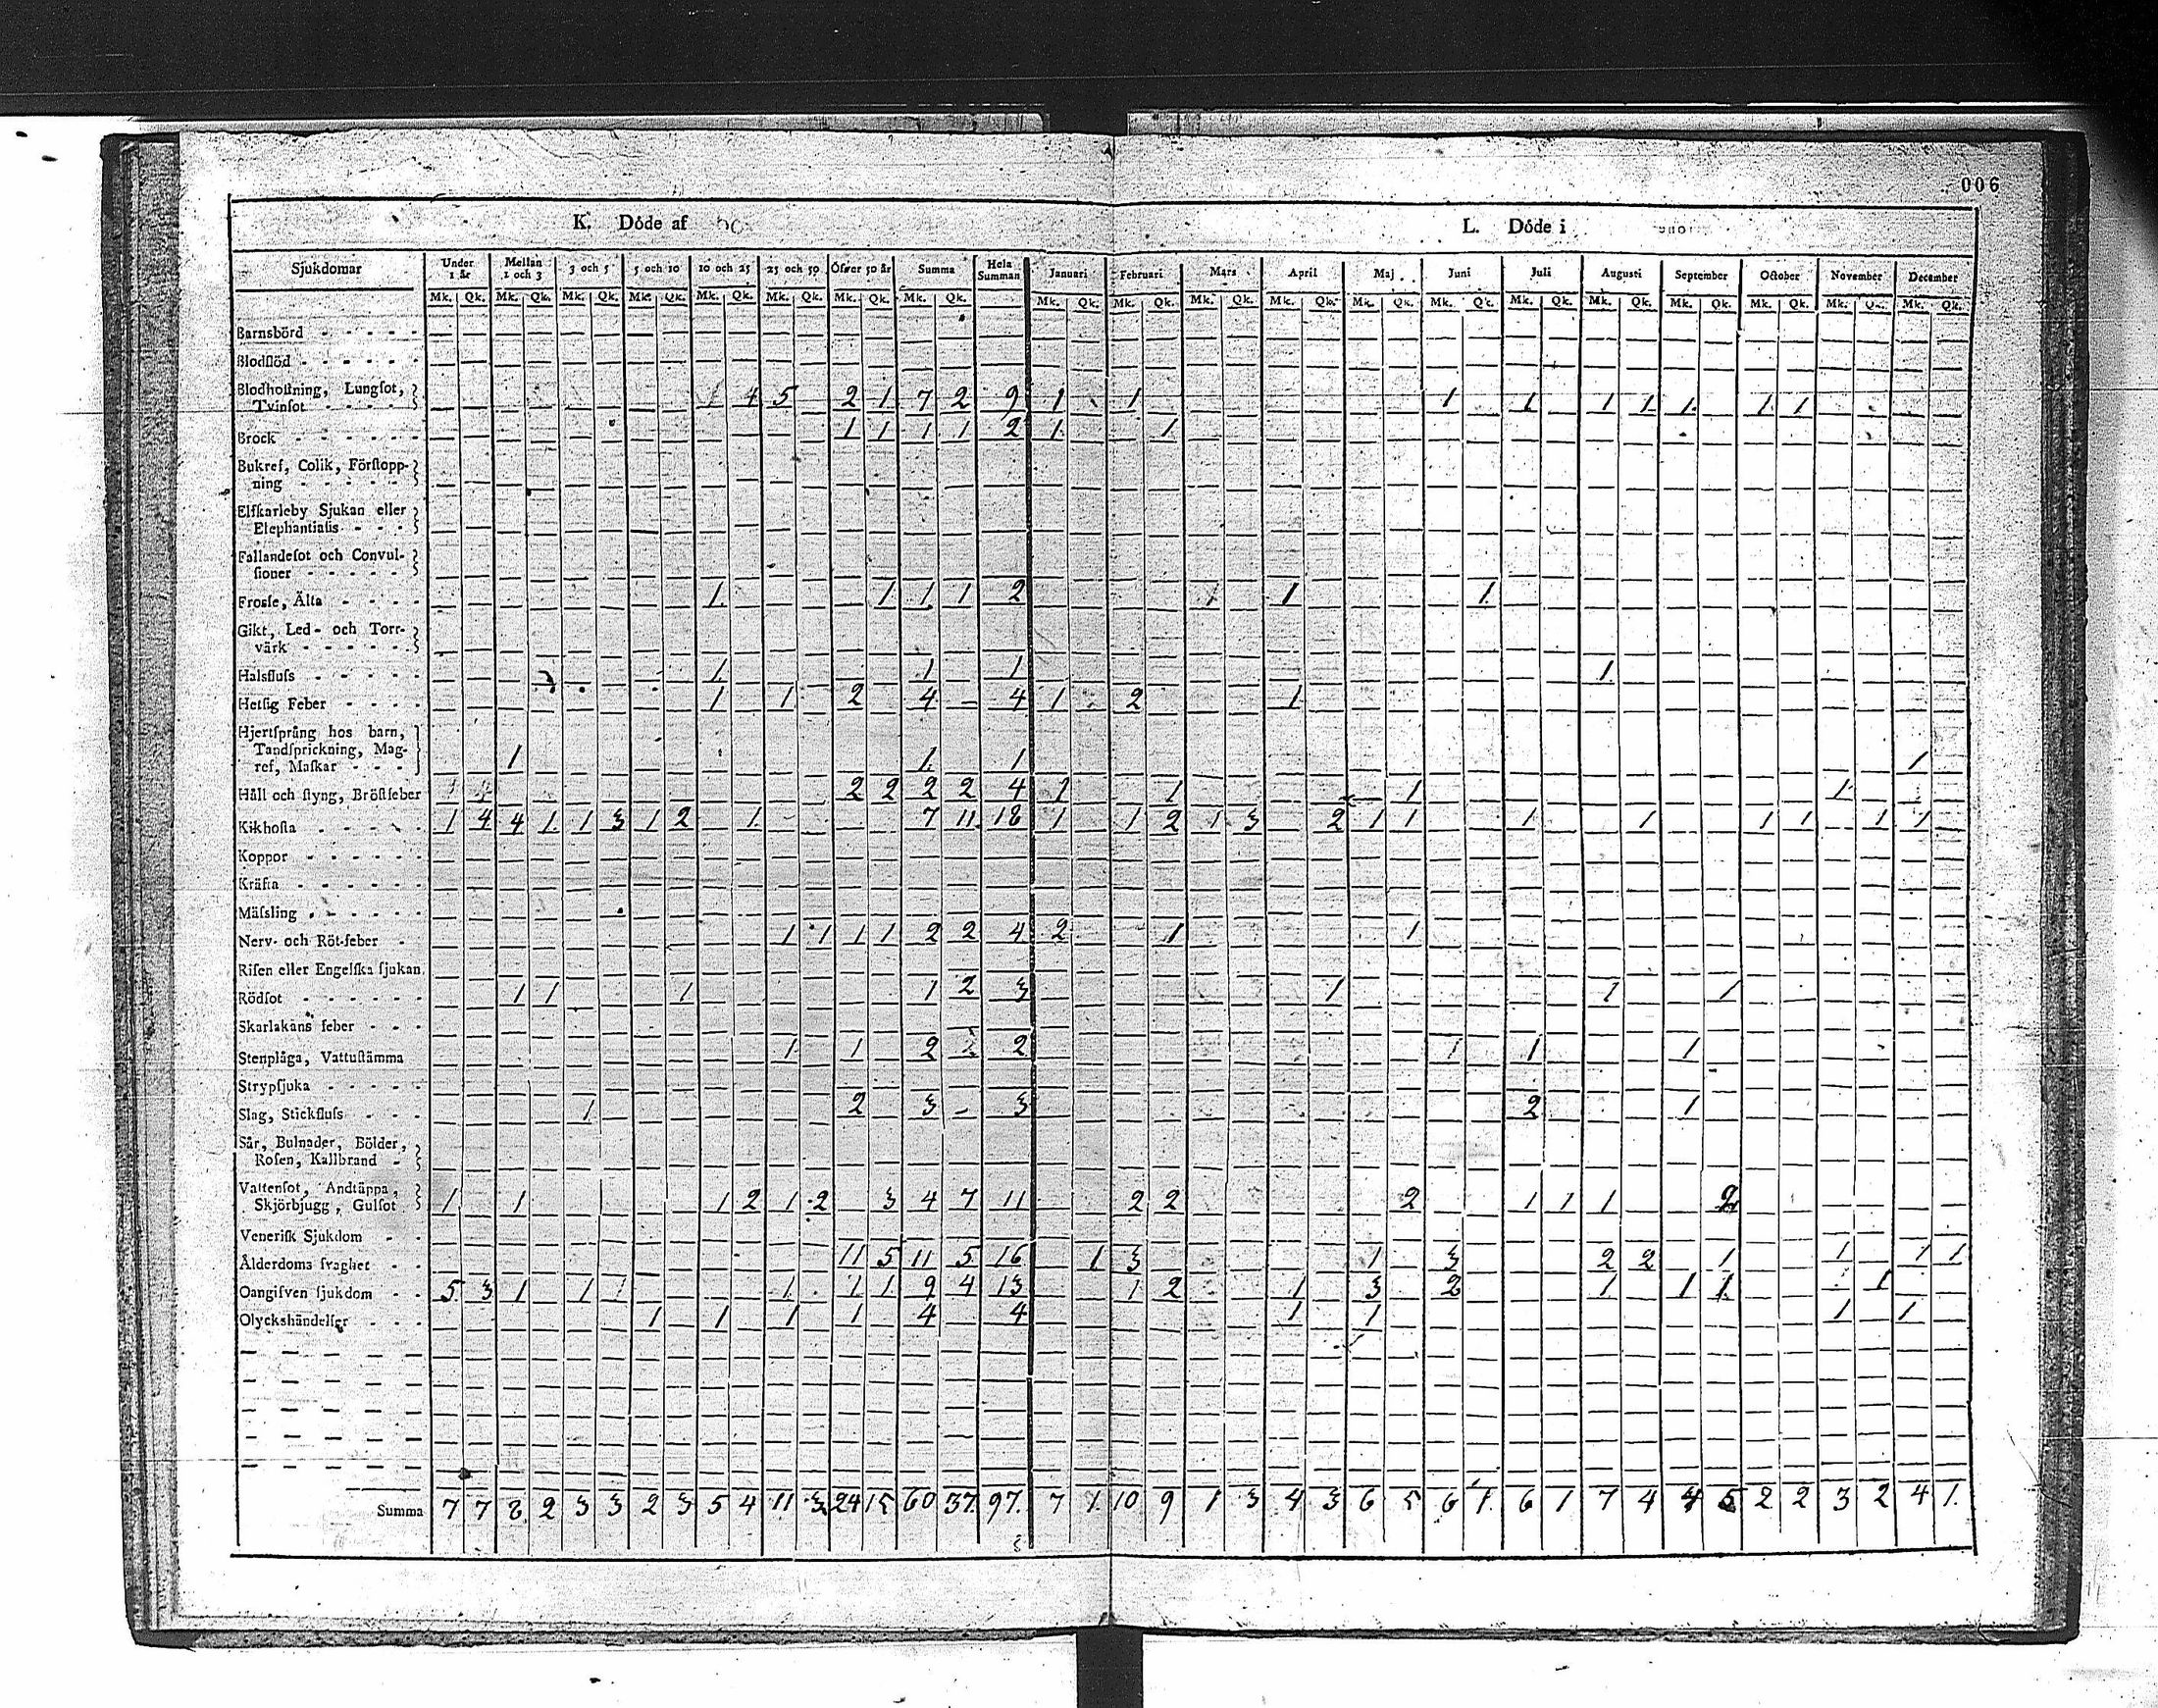 006
K. Döde af
L. Döde i
Sjukdomar Under 1 år Mellan 1 och 3 3 och 5 5 och 10 10 och 25 25 och 50 Öfver 50 år Summa Hela Summan Januari Februari Mars April Maj Juni Juli Augusti September October November December
Mk. Qk. Mk. Qk. Mk. Qk. Mk. Qk. Mk. Qk. Mk. Qk. Mk. Qk. Mk. Qk. Mk. Qk. Mk. Qk. Mk. Qk. Mk. Qk. Mk. Qk. Mk. Qk. Mk. Qk. Mk. Qk. Mk. Qk. Mk. Qk. Mk. Mk. Qk.
Barnsbörd
Blodflöd
Blodhostning, Lungsot,
Tvinsot 4 5 2 1 7 2 9 1 1 1 1 1 1 1 1 1
Bröck 1 1 1 1 2 1 1
Bukref, Colik, Förstopp-
ning
Elfkarleby Sjukan eller
Elephantiasis
Fallandesot och Convul-
sioner
Frossa, Älta 1 1 1 1 2 1 1
Gikt, Led- och Torr-
värk
Halsfluss 1 1 1 1
Hetsig Feber 1 1 2 4 4 1 2 1
Hjertsprång hos barn,
Tandsprickning, Mag-
ref, Maskar 1 1 1 1
Håll och styng, Bröstfeber 2 2 2 2 4 1 1 1 1
Kikhosta 1 4 4 1 1 3 1 2 1 7 11 18 1 1 2 1 3 2 1 1 1 1 1 1 1 1
Koppor
Kräfta
Mässling
Nerv- och Röt-feber 1 1 1 1 2 2 4 2 1 1
Risen eller Engelska sjukan
Rödsot 1 1 1 1 2 3 1 1 1
Skarlakans feber
Stenplåga, Vattustämma 1 1 2 2 1 1
Strypsjuka
Slag, Stickfluss 1 2 3 3 2 1
Sår, Bulnader, Bölder,
Rosen, Kallbrand
Vattensot, Andtäppa,
Skörbjugg, Gulsot 1 1 1 2 1 2 3 4 7 11 2 2 2 1 1 1 2
Venerisk Sjukdom
Ålderdoms svaghet 11 5 11 5 16 1 3 1 3 2 2 1 1 1 1
Oangifven sjukdom 5 3 1 1 1 1 1 9 4 13 1 2 1 3 2 1 1 1 1
Olyckshändelser 1 1 1 1 4 4 1 1 1 1
Summa 7 7 8 2 3 3 2 3 5 4 11 3 24 15 60 37. 97. 7 1. 10 9 1 3 4 3 6 5 6 1. 6 1 7 4 4 5 2 2 3 2 4 1.